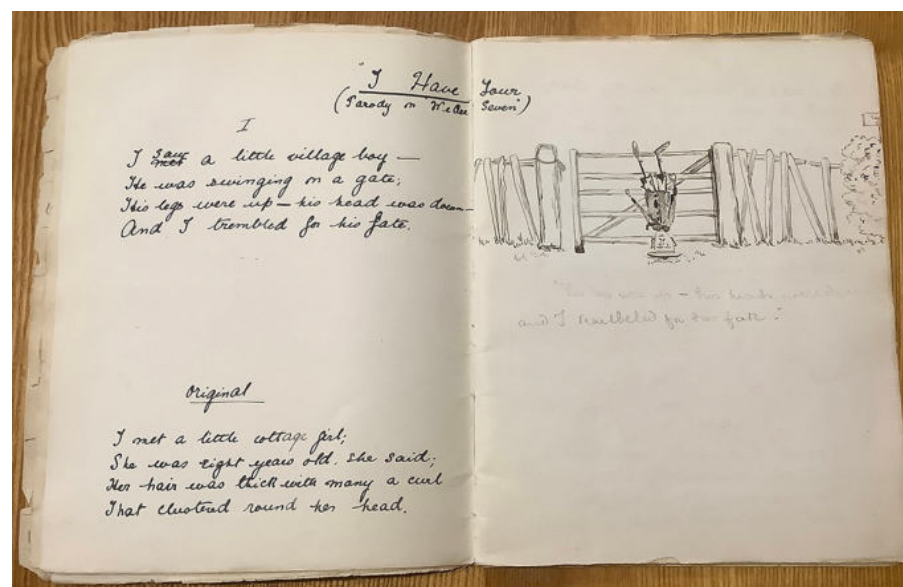 "I Have Four
(Parody on "We are Seven")
I
I saw a little village boy —
He was swinging on a gate;
His legs were up — his head was down —
And I trembled for his fate.
original
I met a little cottage girl;
She was eight years old. she said;
Her hair was thick with many a curl
That clustered round her head.
was up — his head
and I trembled for his fate."